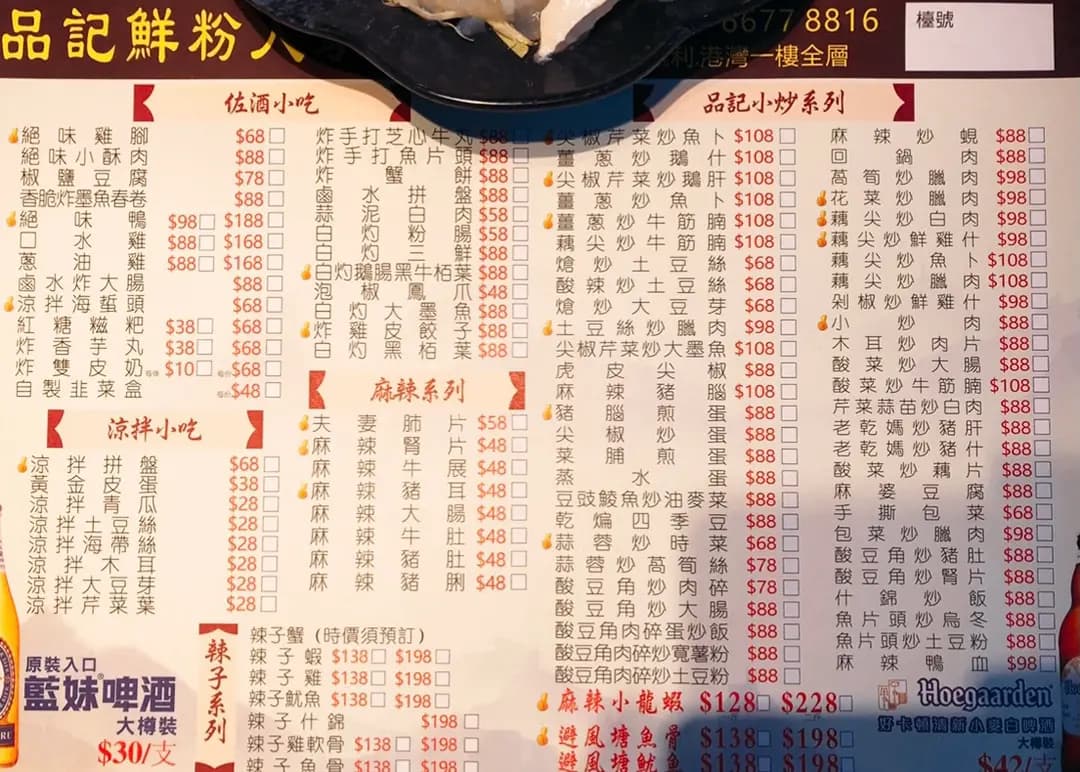 品記鮮粉
6677 8816
港灣一樓全層
檯號
佐酒小吃
絕味雞腳 $68
絕味小酥肉 $88
椒鹽豆腐 $78
香脆炸墨魚春卷 $88
絕味鴨 $98 $188
口水雞 $88 $168
蔥油雞 $88 $168
鹵水炸大腸 $88
涼拌海蜇頭 $68
紅糖糍粑 $38 $68
炸香芋丸 $38 $68
炸雙皮奶 $10 $68
自製韭菜盒 $48
炸手打芝心牛丸 $88
炸手打魚片頭 $88
炸蟹餅 $88
鹵水拼盤 $88
蒜泥白肉 $58
白灼粉腸 $58
白灼三鮮 $88
白灼鵝腸黑牛栢葉 $88
泡椒鳳爪 $48
白灼大墨魚 $88
炸雞皮餃子 $88
白灼黑栢葉 $88
涼拌小吃
涼拌拼盤 $68
黃金皮蛋 $38
涼拌青瓜 $28
涼拌土豆絲 $28
涼拌海帶絲 $28
涼拌木耳 $28
涼拌大豆芽 $28
涼拌芹菜葉 $28
麻辣系列
夫妻肺片 $58
麻辣腎片 $48
麻辣牛展 $48
麻辣豬耳 $48
麻辣大腸 $48
麻辣牛肚 $48
麻辣豬肚 $48
麻辣豬脷 $48
原裝入口
藍妹啤酒
大樽裝
$30/支
辣子系列
辣子蟹(時價須預訂)
辣子蝦 $138 $198
辣子雞 $138 $198
辣子魷魚 $138 $198
辣子什錦 $198
辣子雞軟骨 $138 $198
辣子魚骨 $138 $198
品記小炒系列
尖椒芹菜炒魚卜 $108
薑蔥炒鵝什 $108
尖椒芹菜炒鵝肝 $108
薑蔥炒魚卜 $108
薑蔥炒牛筋腩 $108
藕尖炒牛筋腩 $108
熗炒土豆絲 $68
酸辣炒土豆絲 $68
熗炒大豆芽 $68
土豆絲炒臘肉 $98
尖椒芹菜炒大墨魚 $108
虎皮尖椒 $88
麻辣豬腦 $108
豬腦煎蛋 $88
尖椒炒蛋 $88
菜脯煎蛋 $88
蒸水蛋 $88
豆豉鯪魚炒油麥菜 $88
乾煸四季豆 $88
蒜蓉炒時菜 $68
蒜蓉炒萵筍絲 $78
酸豆角炒肉碎 $78
酸豆角炒大腸 $88
酸豆角肉碎蛋炒飯 $88
酸豆角肉碎炒寬薯粉 $88
酸豆角肉碎炒土豆粉 $88
麻辣小龍蝦 $128 $228
避風塘魚骨 $138 $198
避風塘魷魚 $138 $198
麻辣炒蜆 $88
回鍋肉 $88
萵筍炒臘肉 $98
花菜炒臘肉 $98
藕尖炒白肉 $98
藕尖炒鮮雞什 $98
藕尖炒魚卜 $108
藕尖炒臘肉 $108
剁椒炒鮮雞什 $98
小炒肉 $88
木耳炒肉片 $88
酸菜炒大腸 $88
酸菜炒牛筋腩 $108
芹菜蒜苗炒白肉 $88
老乾媽炒豬肝 $88
老乾媽炒豬什 $88
酸菜炒藕片 $88
麻婆豆腐 $88
手撕包菜 $68
包菜炒臘肉 $98
酸豆角炒豬肚 $88
酸豆角炒腎片 $88
什錦炒飯 $88
魚片頭炒烏冬 $88
魚片頭炒土豆粉 $88
麻辣鴨血 $98
Hoegaarden
好卡頓清新小麥白啤酒
大樽裝
$42/支